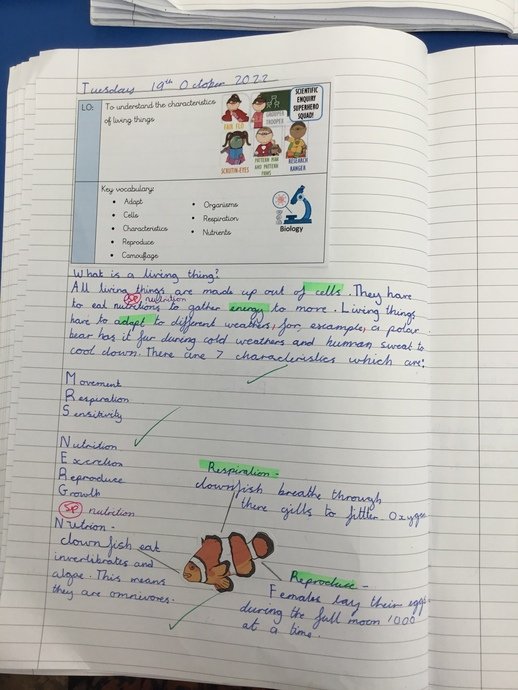 Tuesday 19th October 2022
LO:
To understand the characteristics
of living things
SCIENTIFIC
ENQUIRY
SUPERHERO
SQUAD!
FAIR FLO
GROUPER
TROOPER
SCRUTIN-EYES
PATTERN MAN
AND PATTERN
PAWS
RESEARCH
RANGER
Key vocabulary:
• Adapt
• Cells
• Characteristics
• Reproduce
• Camouflage
• Organisms
• Respiration
• Nutrients
Biology
What is a living thing?
All living things are made up out of cells. They have
sp nutrition
to eat nutritions to gather energy to move. Living things
have to adapt to different weathers, for escample, a polar
bear has it fur during cold weathers and human sweat to
cool down. There are 7 characteristics which are:
Movement
Respiration
Sensitivity
Nutrition
Excretion
Reproduce
Growth
sp nutrition
Nutrion -
clown fish eat
invertibrates and
algae. This means
they are omnivores.
Respiration -
clownfish breathe through
there gills to filter Oxygen
Reproduce -
Females lay their eggs
during the full moon 1000
at a time.